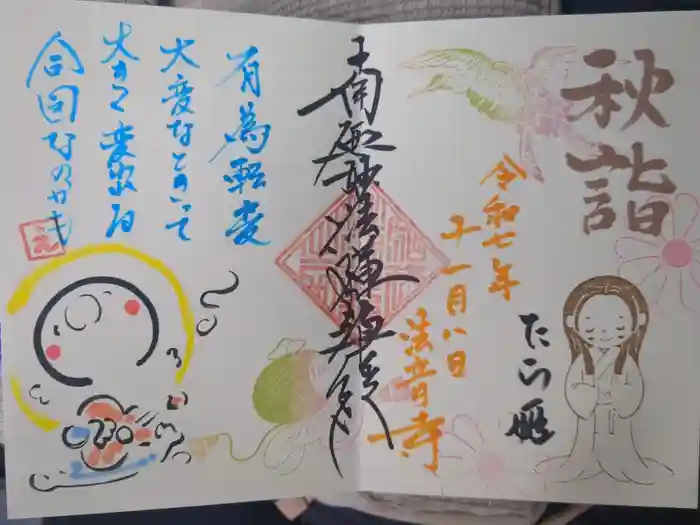 秋詣
令和七年
十一月八日
法音寺
たら姫
南無妙法蓮華経
有為転変
大変なときって
大きく変われる
合図なのかも